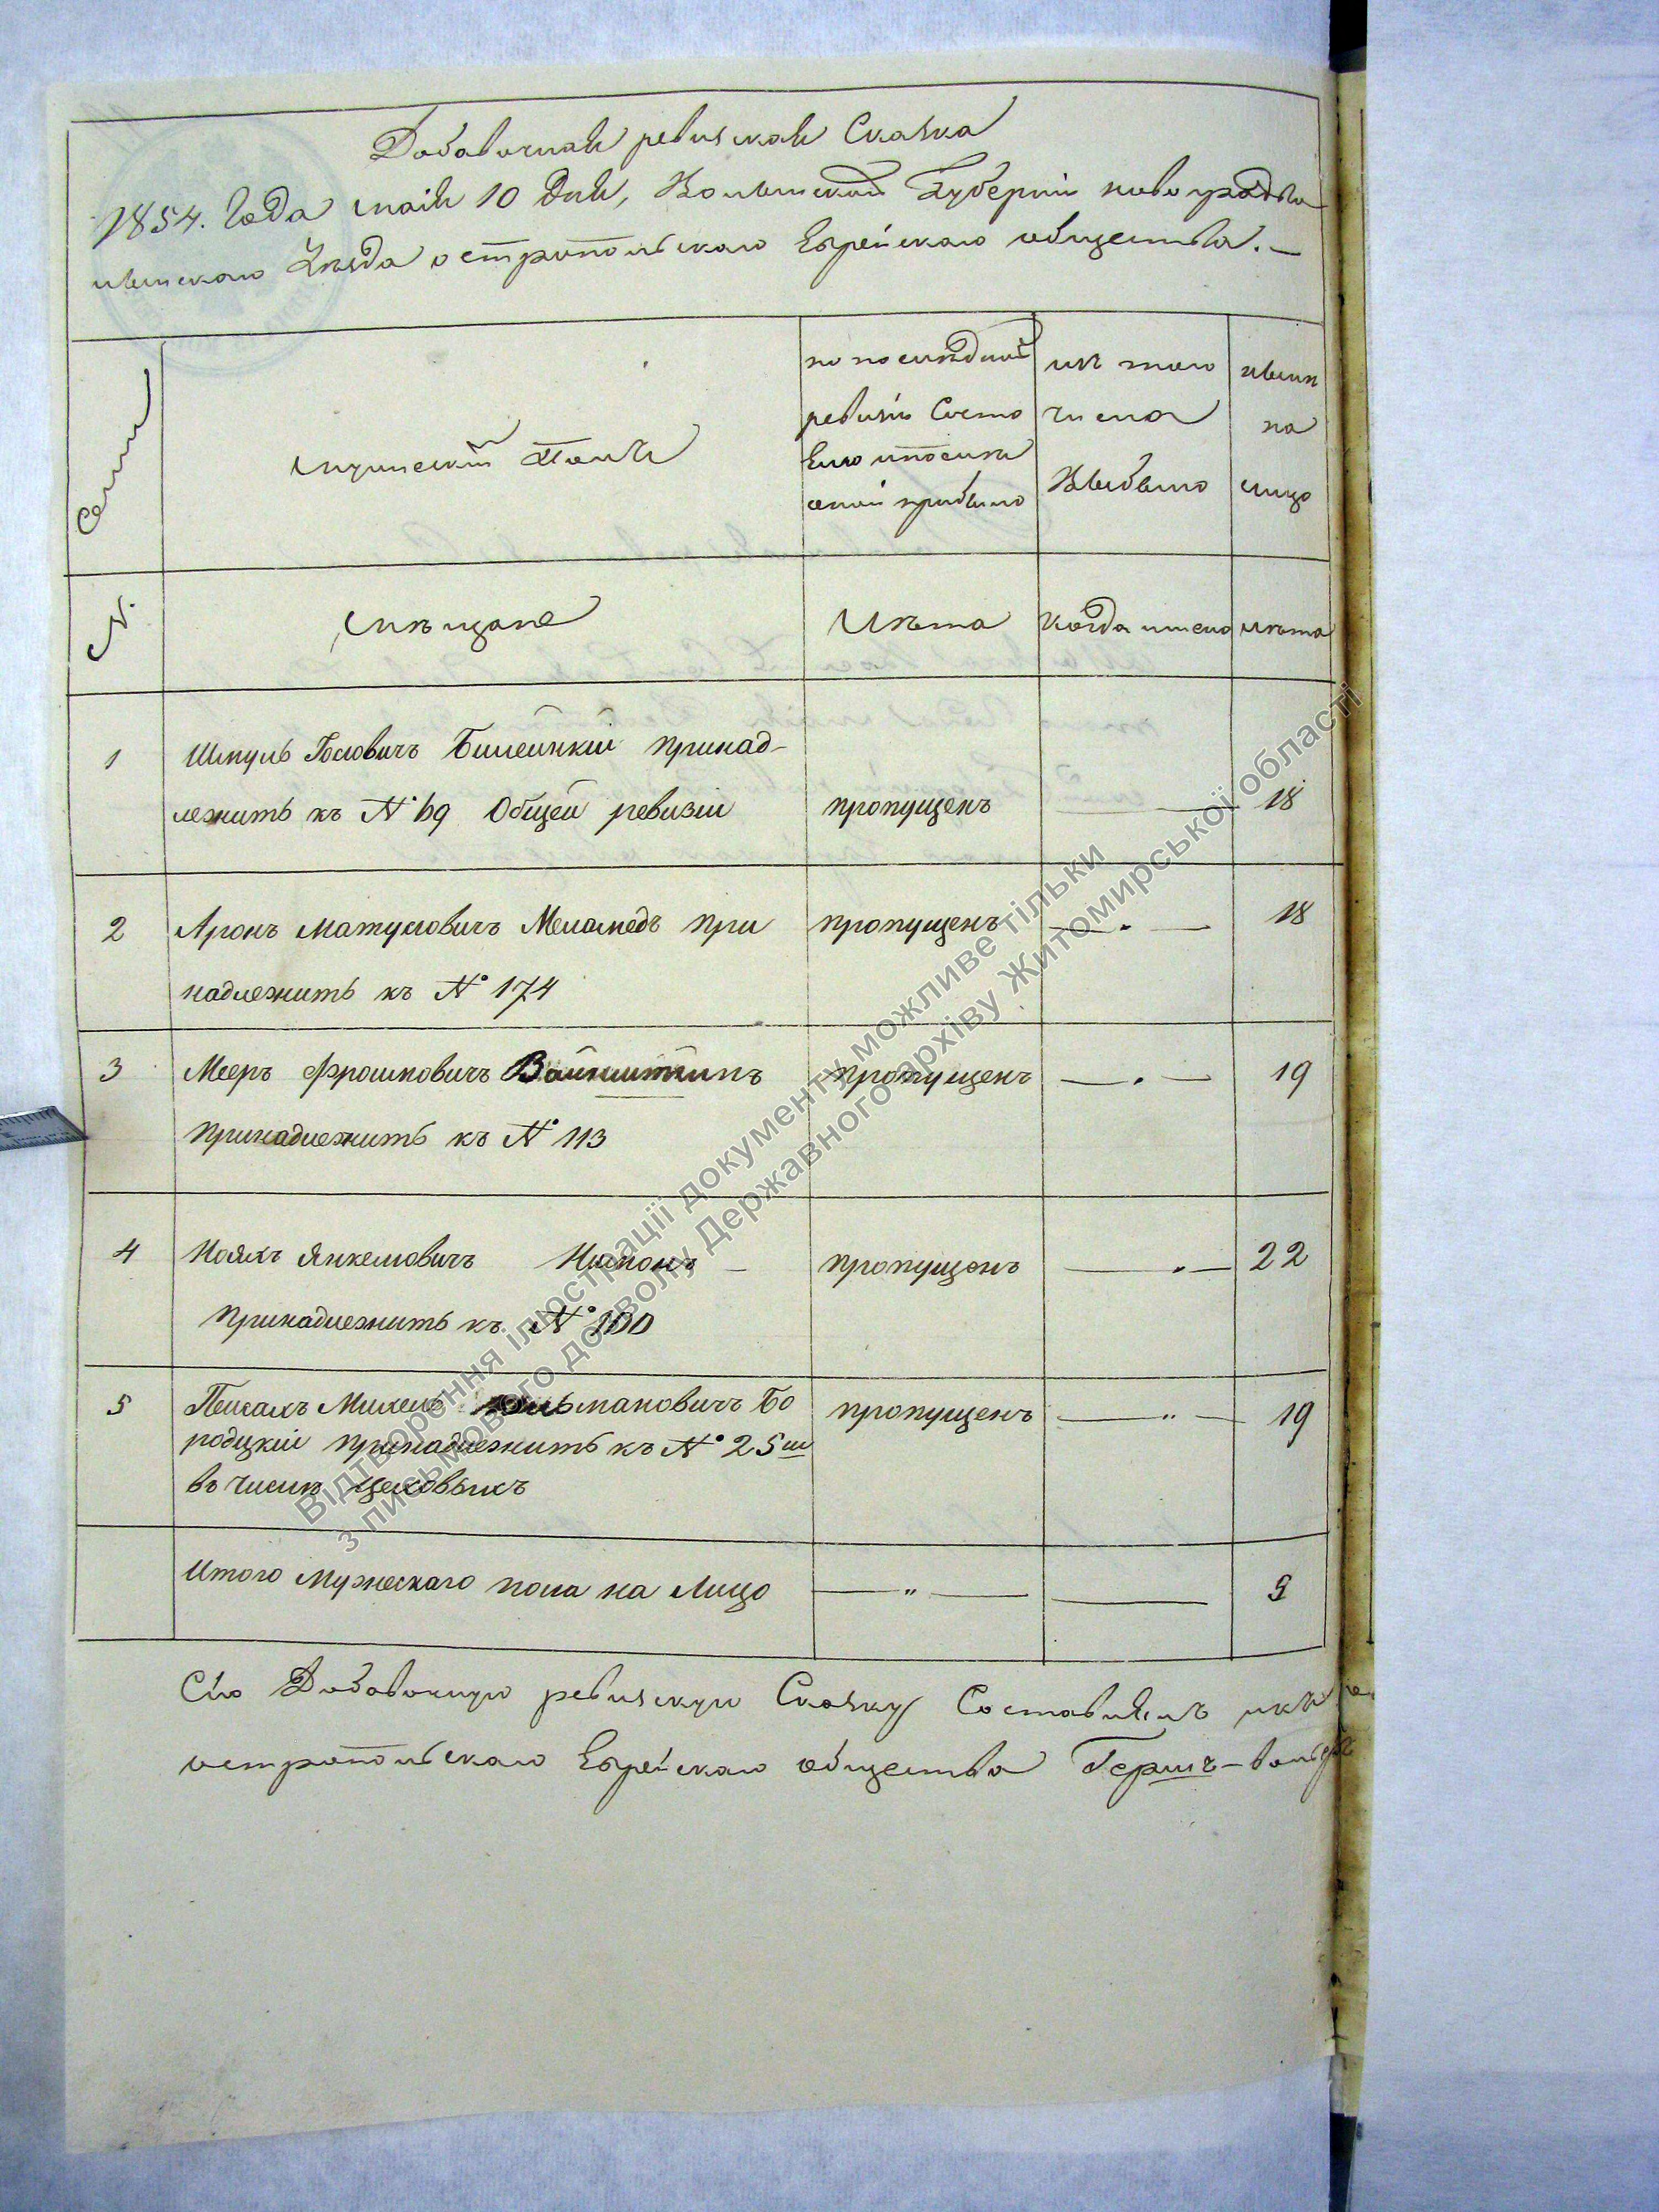 Добавочная ревизская Сказка
1854. Года маія 10 дня, Волынской Губерніи новоградъво
лынскаго Уезда остропольскаго Еврейскаго общества. —
Семьи
мужескій Полъ
по последней
ревизіи Состо
яло и после
оной прибыло
изъ того
числа
Выбыло
ныне
на
лицо
№
Мещане
Лета
Когда имено
Лета
1
Шмуль Іосіовичъ принад-
лежить къ № 69 Общей ревизіи
пропущенъ
18
2
Аронъ Матусовичъ Меламедъ при
надлежить къ № 174
пропущенъ
18
3
Мееръ Фроимовичъ
принадлежить къ № 113
пропущенъ
19
4
Янкелевичъ
принадлежить къ № 100
пропущенъ
22
5
Пейсахъ Михель Бо
родцкій принадлежить къ № 25
въ числе цеховыхъ
пропущенъ
19
Итого мужескаго пола на Лицо
5
Сію Добавочную ревизскую Сказку Составлялъ
остропольскаго Еврейскаго общества Гершъ-воль
Відтворення ілюстрації документу можливе тільки
з письмового дозволу Державного архіву Житомирської області